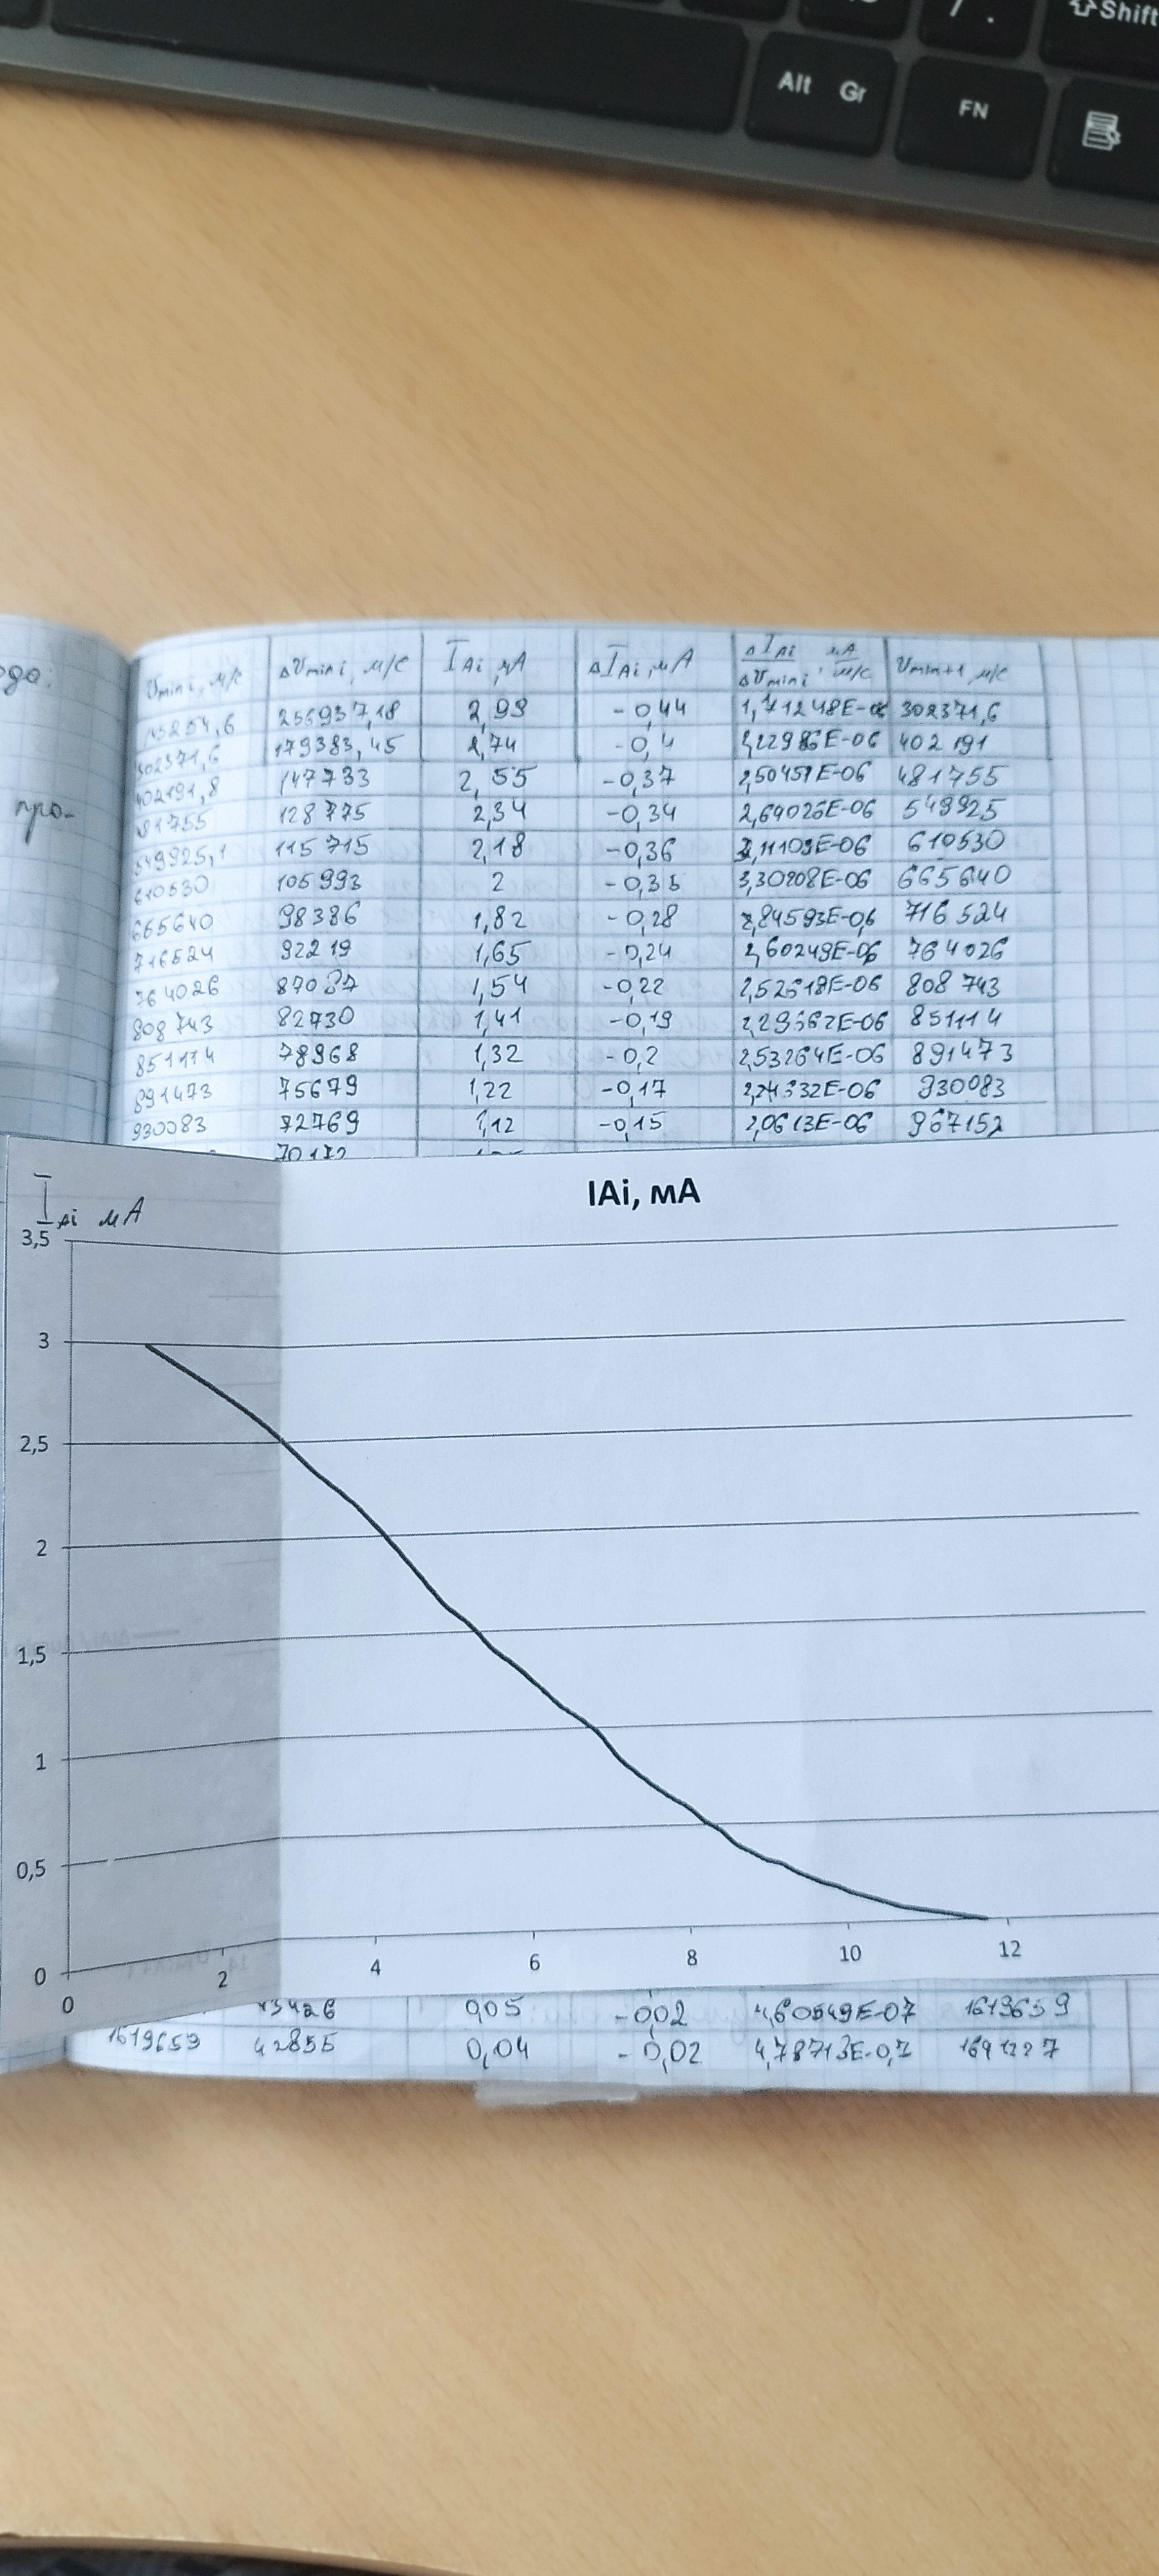 Shift
Alt Gr
FN
ода:
про-
υmin i, м/с Δυmin i, м/с IAi, мА ΔIAi, мА ΔIAi/Δυmin i, мА/м/с υmin+1, м/с
256937,18 2,99 -0,44 1,71248E-06 302371,6
302371,6 179383,45 2,74 -0,4 2,22986E-06 402191
402191,8 147733 2,55 -0,37 2,50451E-06 481755
81755 128775 2,34 -0,34 2,64026E-06 549925
549925,1 115715 2,18 -0,36 3,11109E-06 610530
610530 105993 2 -0,35 3,30208E-06 665640
665640 98386 1,82 -0,28 2,84593E-06 716524
716524 92219 1,65 -0,24 2,60249E-06 764026
764026 87087 1,54 -0,22 2,52618E-06 808743
808743 82730 1,41 -0,19 2,29662E-06 851114
851114 78968 1,32 -0,2 2,53264E-06 891473
891473 75679 1,22 -0,17 2,24632E-06 930083
930083 72769 1,12 -0,15 2,0613E-06 967152
70172
IAi, мА
IAi мА
3,5
3
2,5
2
1,5
1
0,5
0
0 2 4 6 8 10 12
43426 0,05 -0,02 4,60549E-07 1619659
1619659 42855 0,04 -0,02 4,78713E-0,7